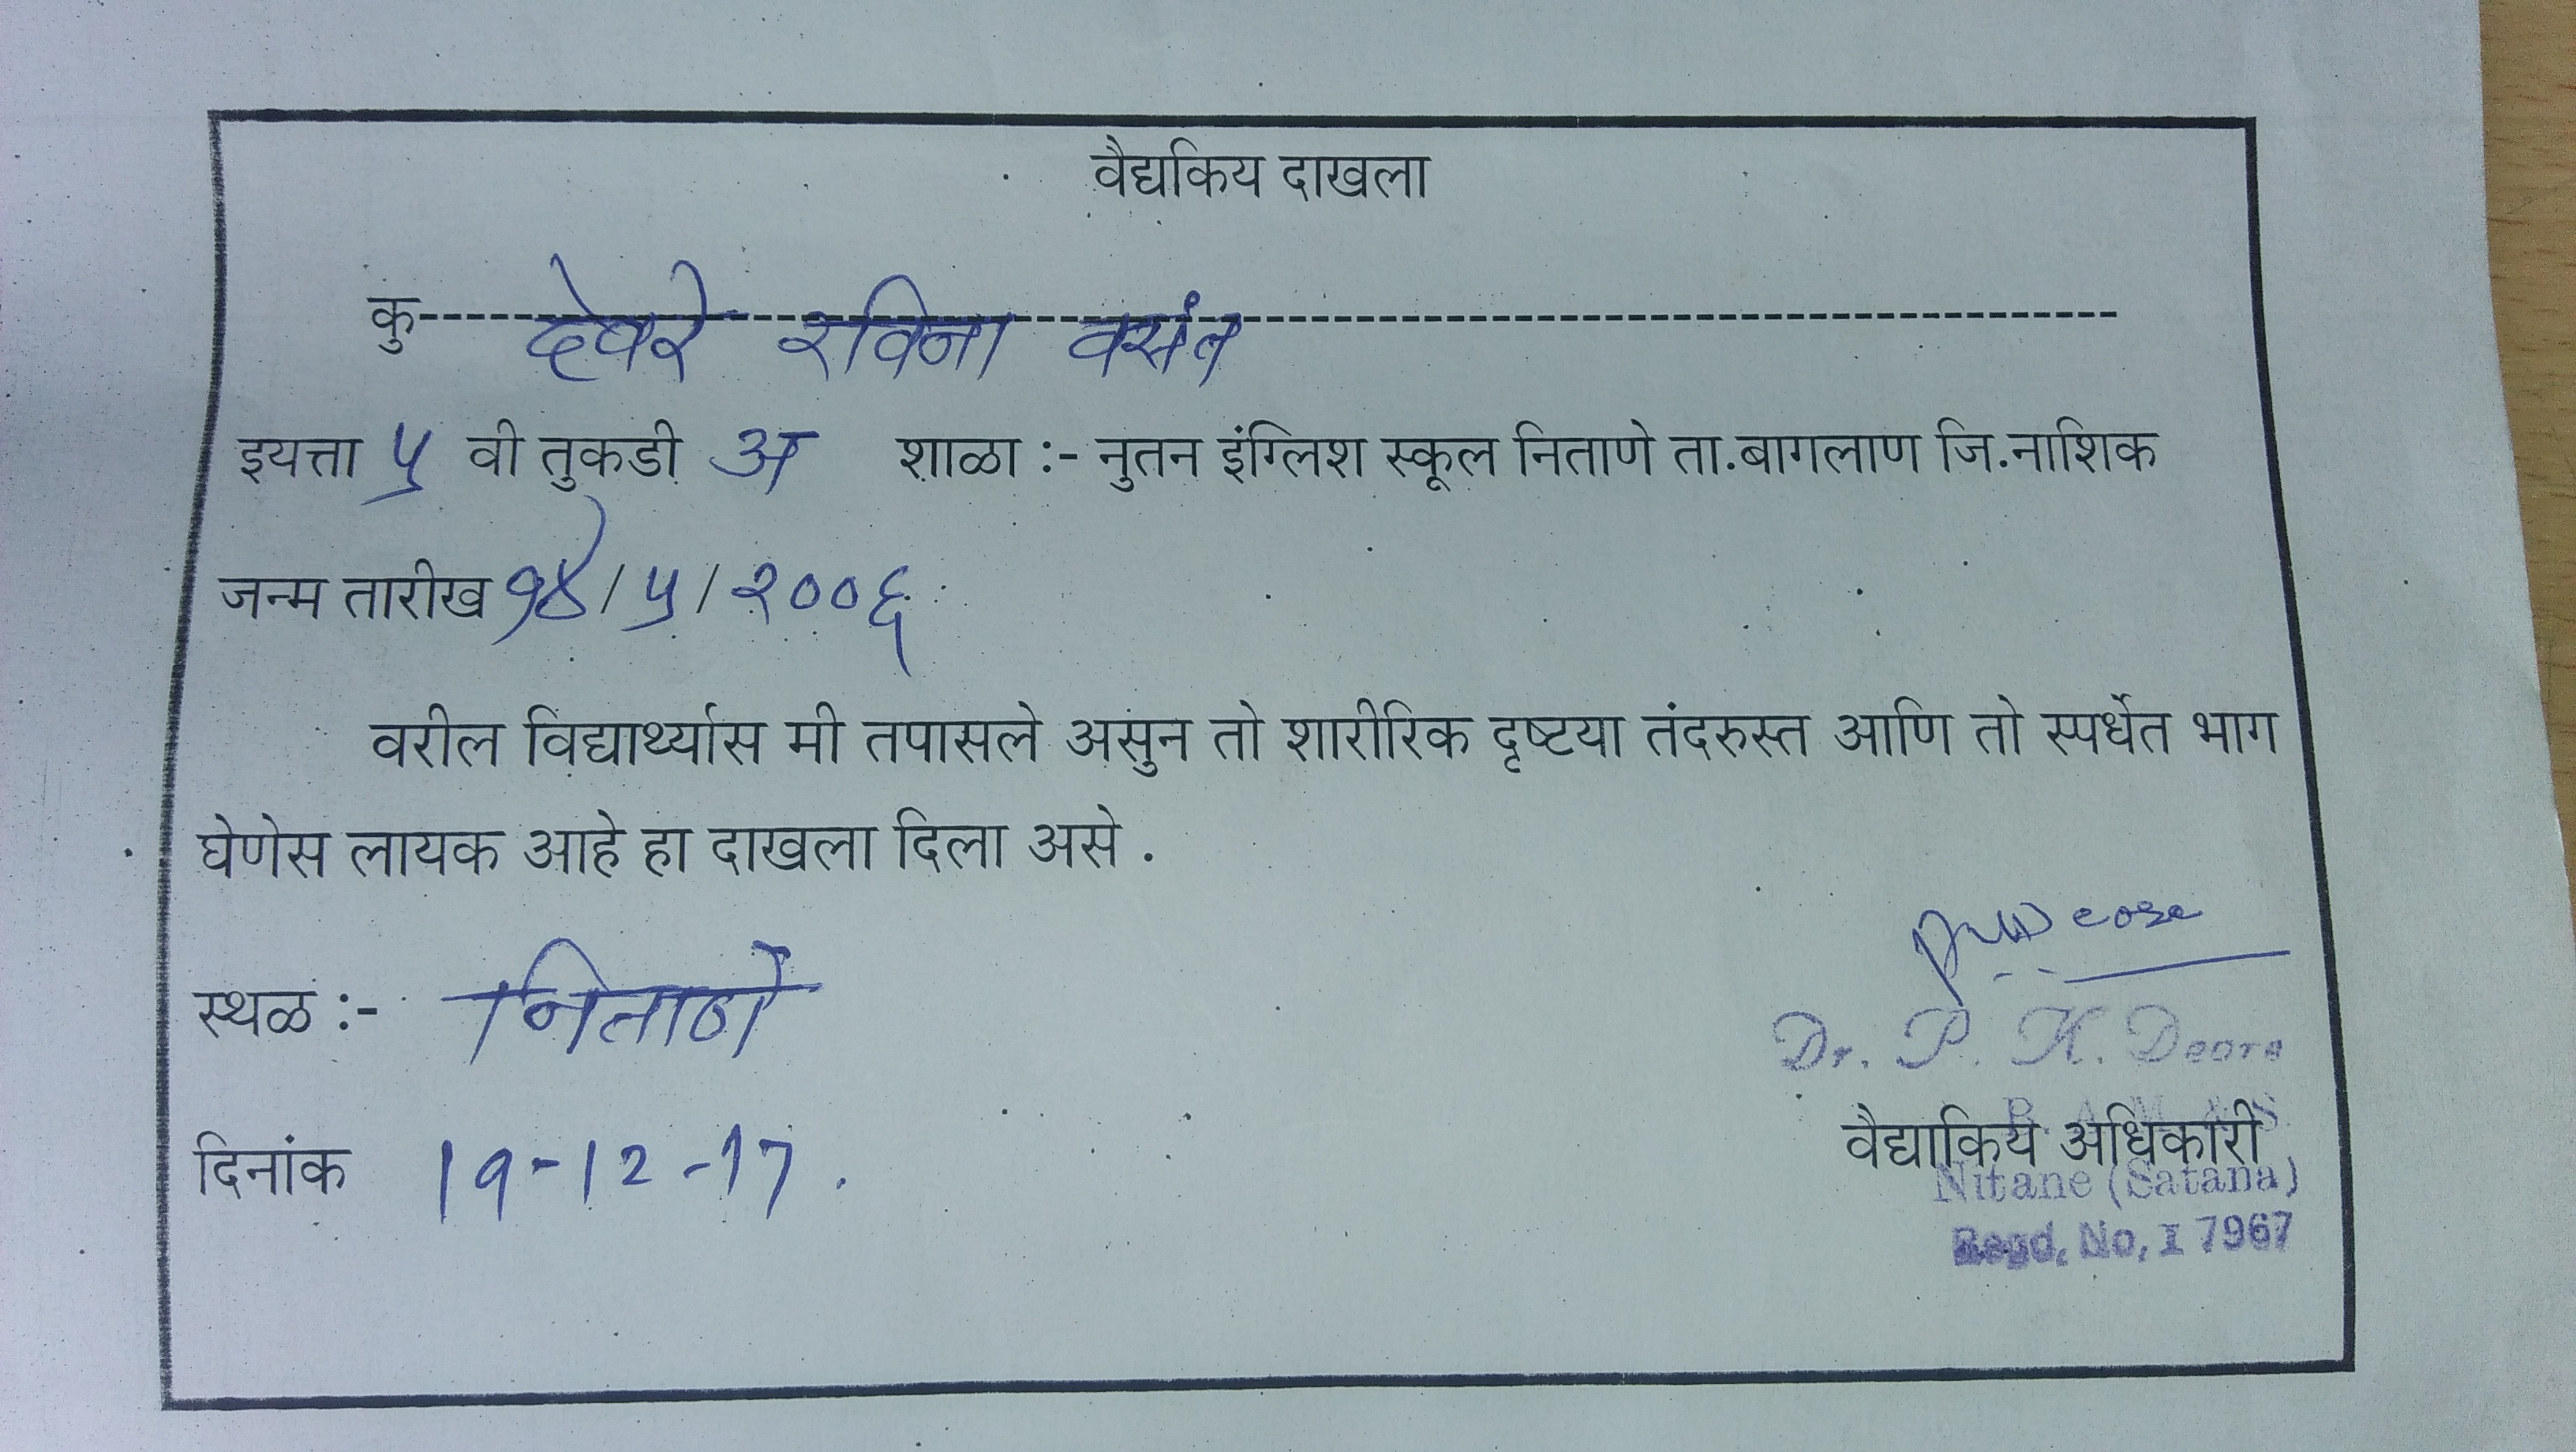 वैद्यकिय दाखला
कु देवरे रविना वसंत
इयत्ता ५ वी तुकडी अ शाळा :- नुतन इंग्लिश स्कूल निताणे ता.बागलाण जि.नाशिक
जन्म तारीख १४/५/२००६
वरील विद्यार्थ्यास मी तपासले असुन तो शारीरिक दृष्टया तंदरुस्त आणि तो स्पर्धेत भाग
घेणेस लायक आहे हा दाखला दिला असे .
Deore
स्थळ :- निताणे
Dr. P. K. Deore
B A M & S
वैद्याकिय अधिकारी
दिनांक 19-12-17.
Nitane (Satana)
Regd. No, I 7967